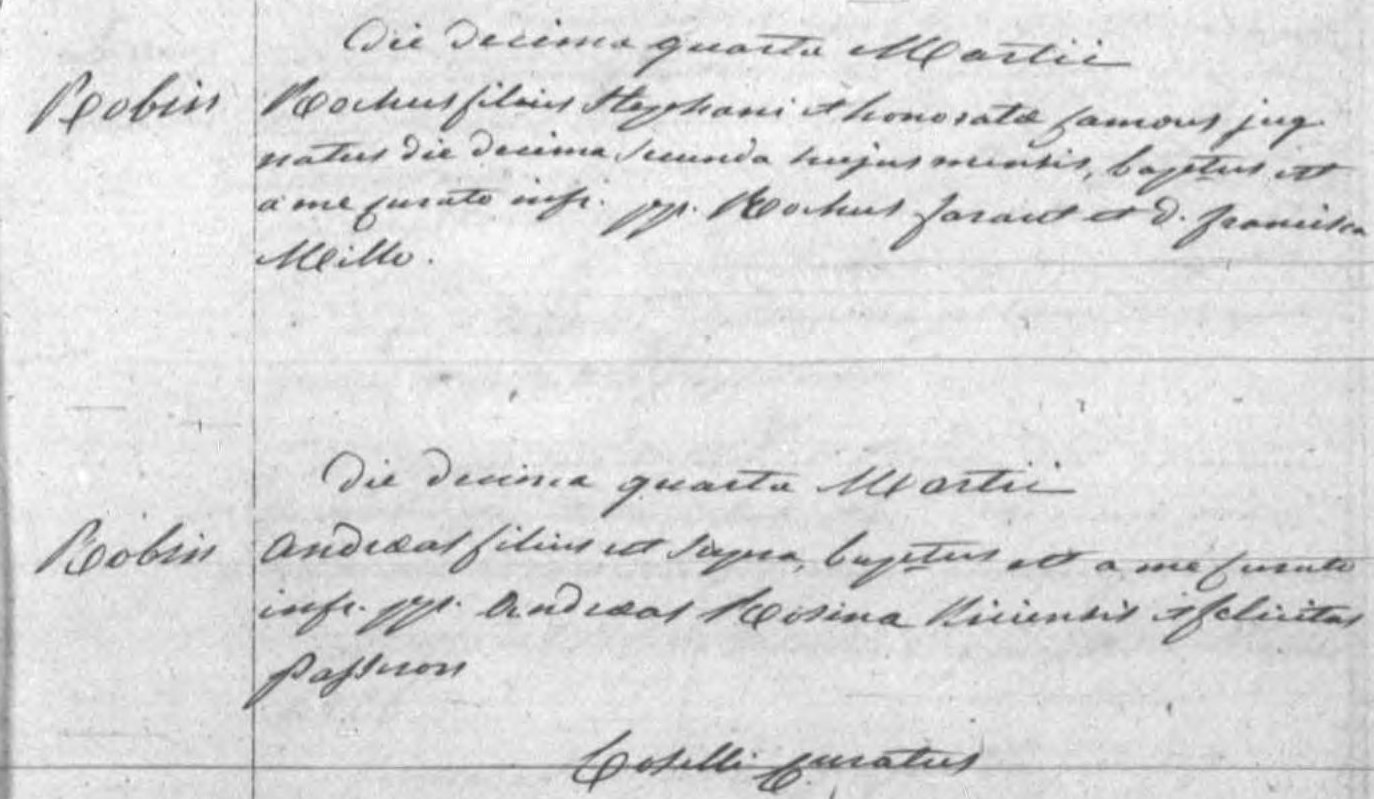 Die decima quarta Martii
Robin
Rochus filius Stephani et honoratæ famous jug.
natus die decima secunda hujus mensis, baptus est
a me curato infr. pp. Rochus faraut et d. francisca
Millo.
Die decima quarta Martii
Robin
Andræas filius ut supra, baptus est a me curato
infr. pp. Andræas Rosina Niciensis et felicitas
Passeron
Curatus